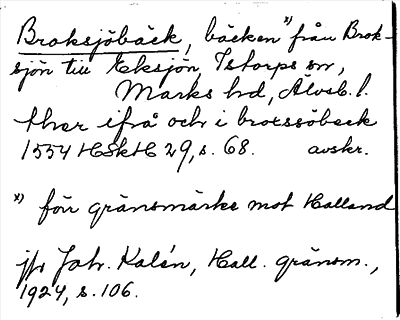 Broksjöbäck, bäcken *) från Brok-
sjön till Eksjön, Istorps sn,
Marks hd, Älvsb. l.
ther ifrå och i brotssöbeck
1554 HSkH 29, s. 68. avskr.
*) förr gränsmärke mot Halland
jfr Joh. Kalén, Hall. gränsm.,
1924, s. 106.